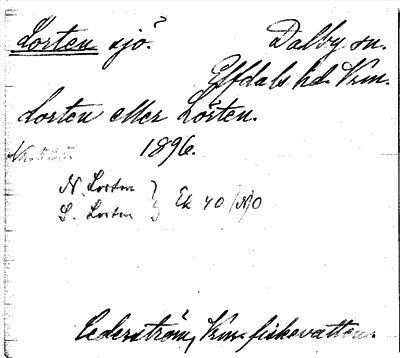 Lorten sjö.
Dalby sn.
Elfdals hd. Vrm.
Lorten eller Lörten.
1896.
N. Lorten
S. Lorten
Ek 40
Cederström, Vrm. fiskevatten.